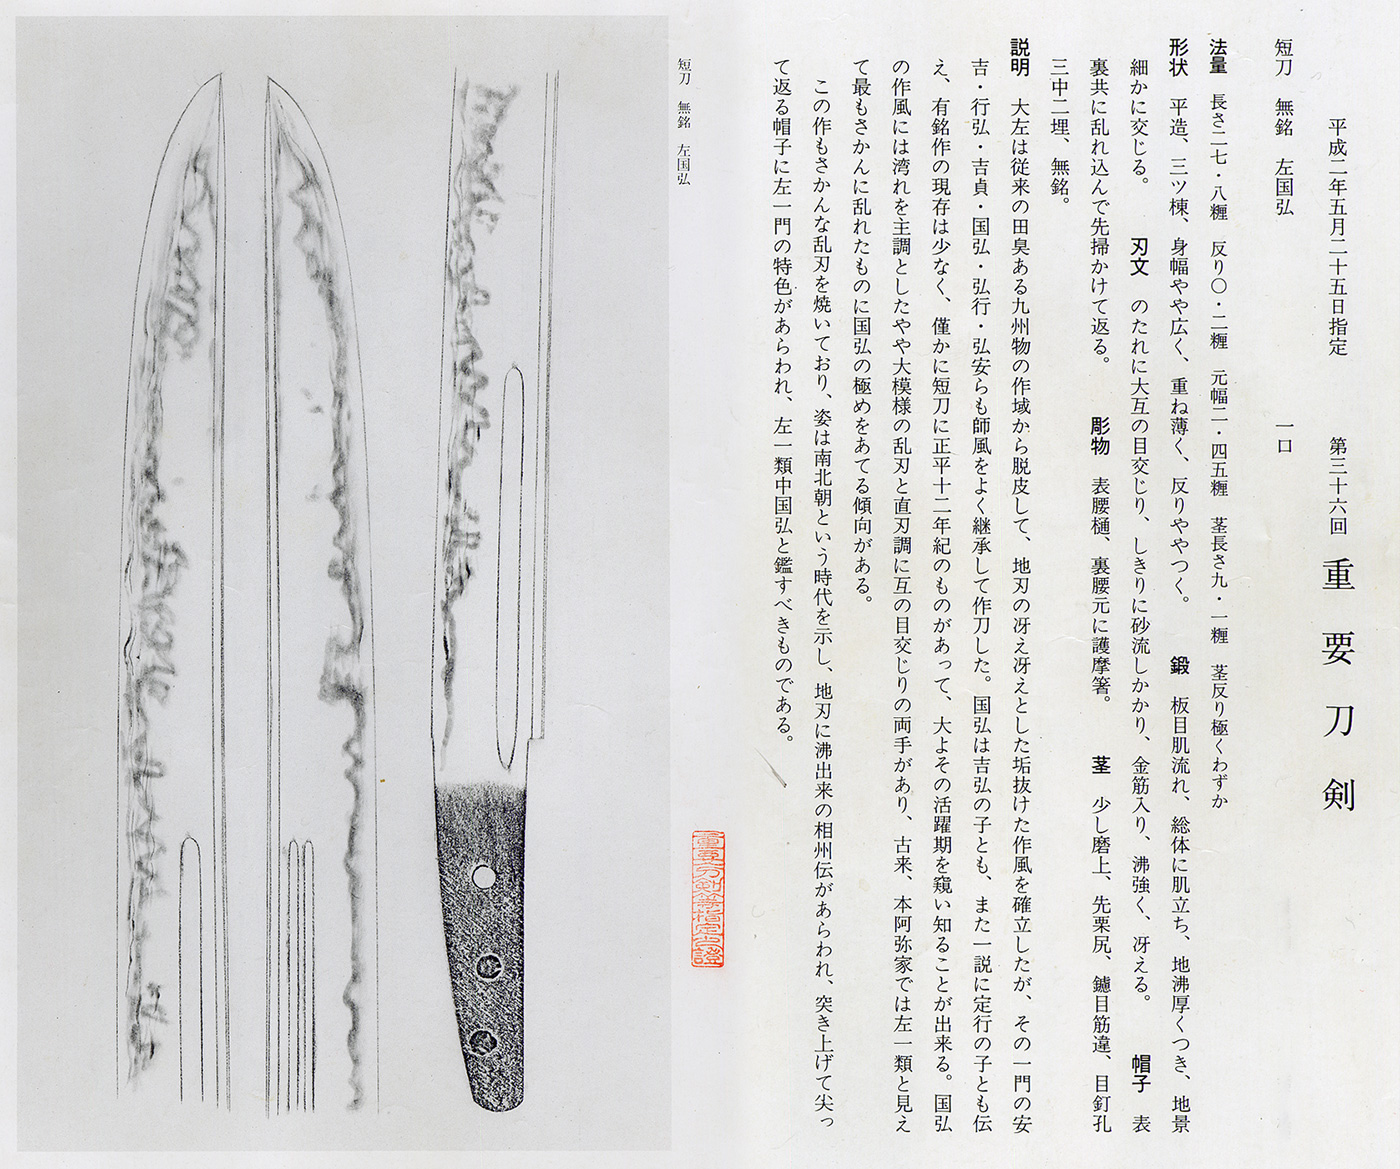 平成二年五月二十五日指定　第三十六回　重要刀剣
短刀　無銘　左国弘　一口
法量　長さ二七・八糎　反り〇・二糎　元幅二・四五糎　茎長さ九・一糎　茎反り極くわずか
形状　平造、三ツ棟、身幅やや広く、重ね薄く、反りややつく。　鍛　板目肌流れ、総体に肌立ち、地沸厚くつき、地景
細かに交じる。　刃文　のたれに大互の目交じり、しきりに砂流しかかり、金筋入り、沸強く、冴える。　帽子　表
裏共に乱れ込んで先掃かけて返る。　彫物　表腰樋、裏腰元に護摩箸。　茎　少し磨上、先栗尻、鑢目筋違、目釘孔
三中二埋、無銘。
説明　大左は従来の田臭ある九州物の作域から脱皮して、地刃の冴え冴えとした垢抜けた作風を確立したが、その一門の安
吉・行弘・吉貞・国弘・弘行・弘安らも師風をよく継承して作刀した。国弘は吉弘の子とも、また一説に定行の子とも伝
え、有銘作の現存は少なく、僅かに短刀に正平十二年紀のものがあって、大よその活躍期を窺い知ることが出来る。国弘
の作風には湾れを主調としたやや大模様の乱刃と直刃調に互の目交じりの両手があり、古来、本阿弥家では左一類と見え
て最もさかんに乱れたものに国弘の極めをあてる傾向がある。
この作もさかんな乱刃を焼いており、姿は南北朝という時代を示し、地刃に沸出来の相州伝があらわれ、突き上げて尖っ
て返る帽子に左一門の特色があらわれ、左一類中国弘と鑑すべきものである。
短刀　無銘　左国弘
重要刀剣等指定之證